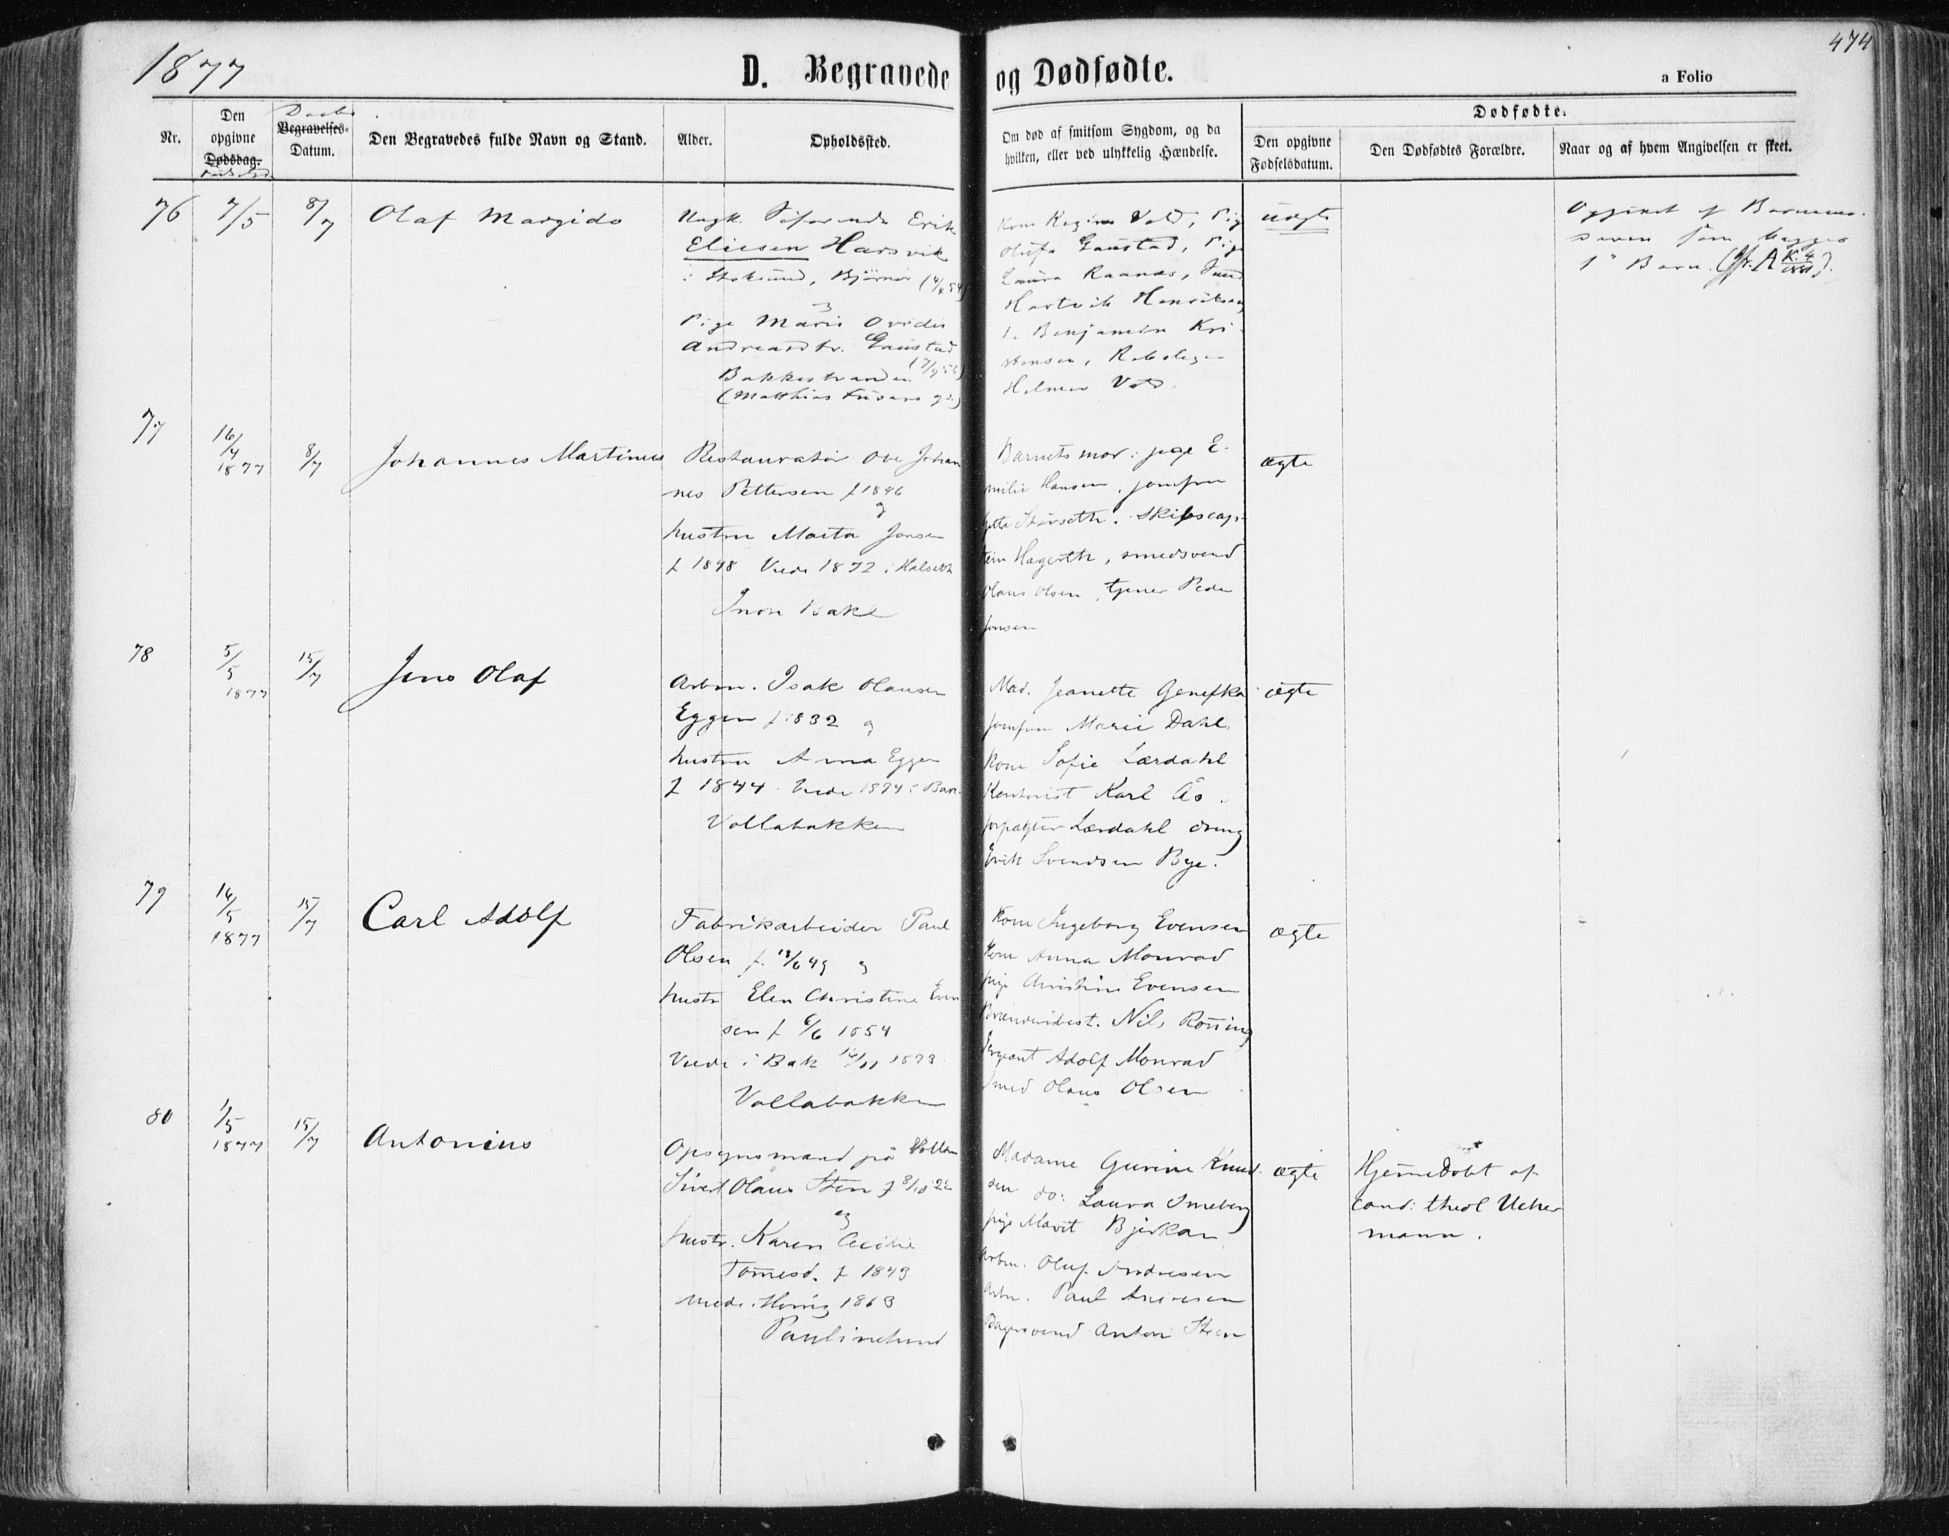 1877
D. Begravede og Dødfødte.
474
a Folio
Nr.
Den opgivne Dødsdag.
Daabs
Begravelses-Datum.
Den Begravedes fulde Navn og Stand.
Alder.
Opholdssted.
Om død af smitsom Sygdom, og da hvilken, eller ved ulykkelig Hændelse.
Dødfødte.
Den opgivne Fødselsdatum.
Den Dødfødtes Forældre.
Naar og af hvem Angivelsen er skeet.
76 7/5 8/7 Olaf Margido
Ungk. Erik
Eliesen Harsvik
i Stoksund, Bjørnør
Pige Marie
Andreasdtr. Gaustad
Bakkestranden
Kone Regine Vold, Pige
Gaustad, Pige
Laura Raanes,
Hartvik Henriksen,
Benjamin Kri-
stensen,
Helmer Vold.
uægte
1ste Barn.
77 16/4 1877 8/7 Johannes Martinus
Restauratør Ove Johan
nes Pettersen f 1846
og
hustru Marta Jonsen
f 1848 Viede 1872 i
Barnets mor: pige E-
milie Hansen, jomfru
Skibscap-
tein Hagerth, smedsvend
Olaus Olsen, tjener Peder
Jonsen
ægte
78 5/5 1877 15/7 Jens Olaf
Arbm. Isak Olausen
Eggen f 1832 og
hustru Anna Eggen
f 1844. Viede 1874 i Bak.
Vollabakken
Mad. Jeanette
jomfru Marie Dahl.
Kone Sofie Lærdahl
Kontorist Karl Ås.
forpagter Lærdahl dreng
Erik Svendsen Bye.
ægte
79 16/5 1877 15/7 Carl Adolf
Fabrikarbeider Paul
Olsen f. 49 og
hustr Elen Christine Even
sen f 6/6 1854
Viede i Bak 1873
Vollabakken
Kone Ingeborg Evensen
Kone Anna Monrad
pige Christine Evensen
Nils Rønning
Sergeant Adolf Monrad
Smed Olaus Olsen
ægte
80 1/5 1877 15/7 Antonius
Opsynsmand på Vollan
Sivert Olaus Sten f 22
og
hustr. Karen Cecilie
Tomesd. f 1843
viede 1863
Paulinelund
Madame Gurine Knud-
sen do: Laura
pige Marit Bjerkan
Arbm. Oluf Andresen
Arbm. Paul Andresen
Bagersvend Anton Steen
ægte
Hjemmedøbt af
cand: theol Ucher
mann.